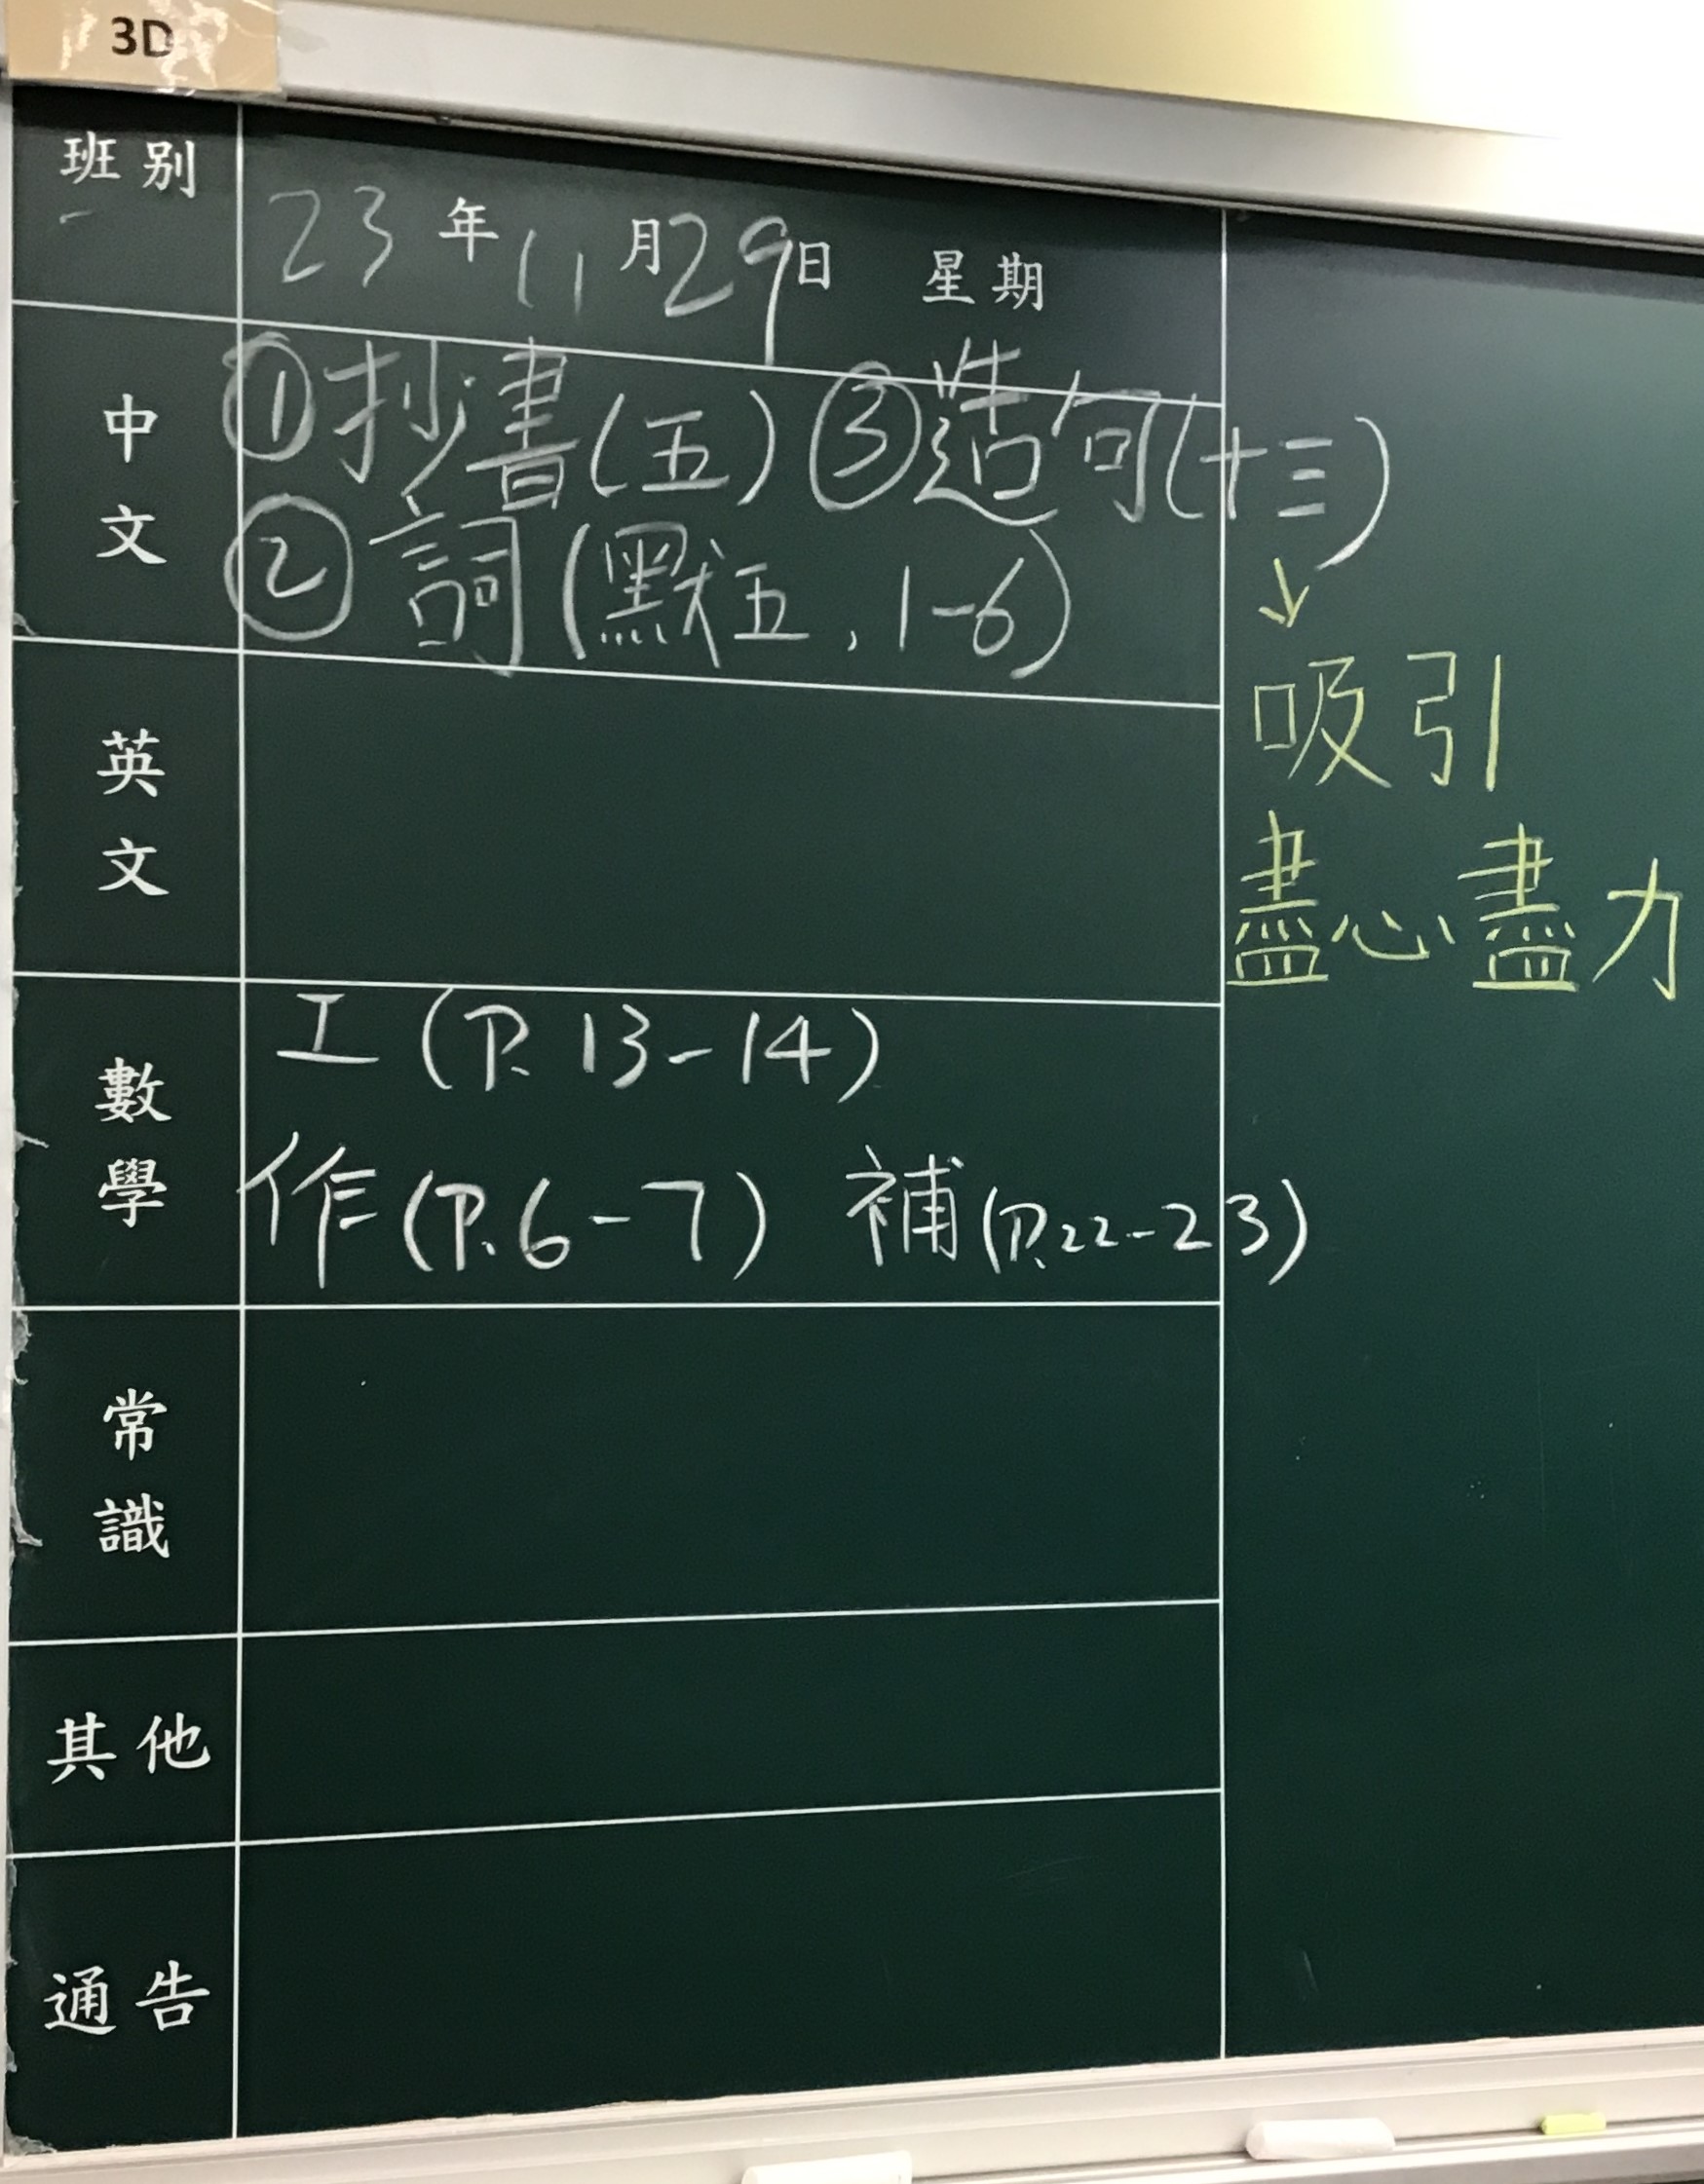 3D
班別
23年11月29日 星期
中文
①抄書(五) ③造句(十三)
②詞(默五,1-6)
↓
吸引
盡心盡力
英文
數學
工(P.13-14)
作(P.6-7) 補(P.22-23)
常識
其他
通告